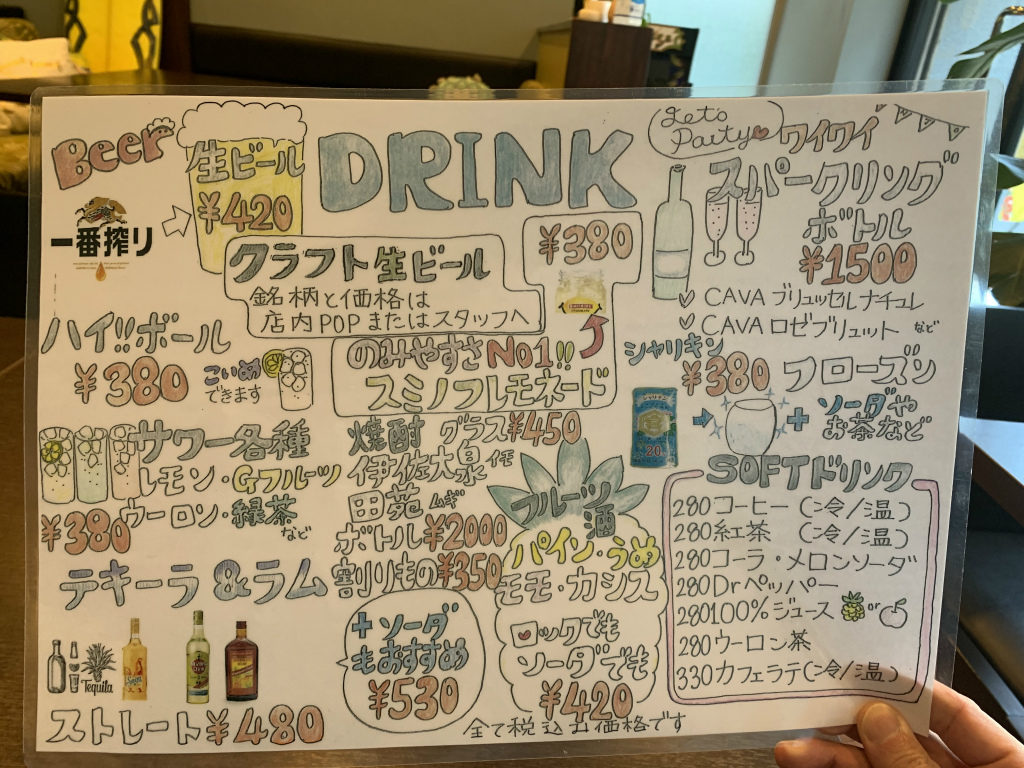 Beer
生ビール
¥420
一番搾り
DRINK
クラフト生ビール
銘柄と価格は
店内POPまたはスタッフへ
¥380
のみやすさNo1!!
スミノフレモネード
Let's
Party
ワイワイ
スパークリング
ボトル
¥1500
CAVA ブリュッセルナチュレ
CAVA ロゼブリュット など
ハイ!!ボール
¥380
こいめ
できます
サワー各種
レモン・Gフルーツ
ウーロン・緑茶
など
¥380
テキーラ&ラム
Tequila
ストレート¥480
焼酎 グラス¥450
伊佐大泉 イモ
田苑 ムギ
ボトル¥2000
割りもの¥350
+ソーダ
もおすすめ
¥530
フルーツ
酒
パイン・うめ
モモ・カシス
ロックでも
ソーダでも
¥420
シャリキン
¥380 フローズン
20
+ソーダや
お茶など
SOFTドリンク
280コーヒー(冷/温)
280紅茶 (冷/温)
280コーラ・メロンソーダ
280Drペッパー
280100%ジュース or
280ウーロン茶
330カフェラテ(冷/温)
全て税込み価格です